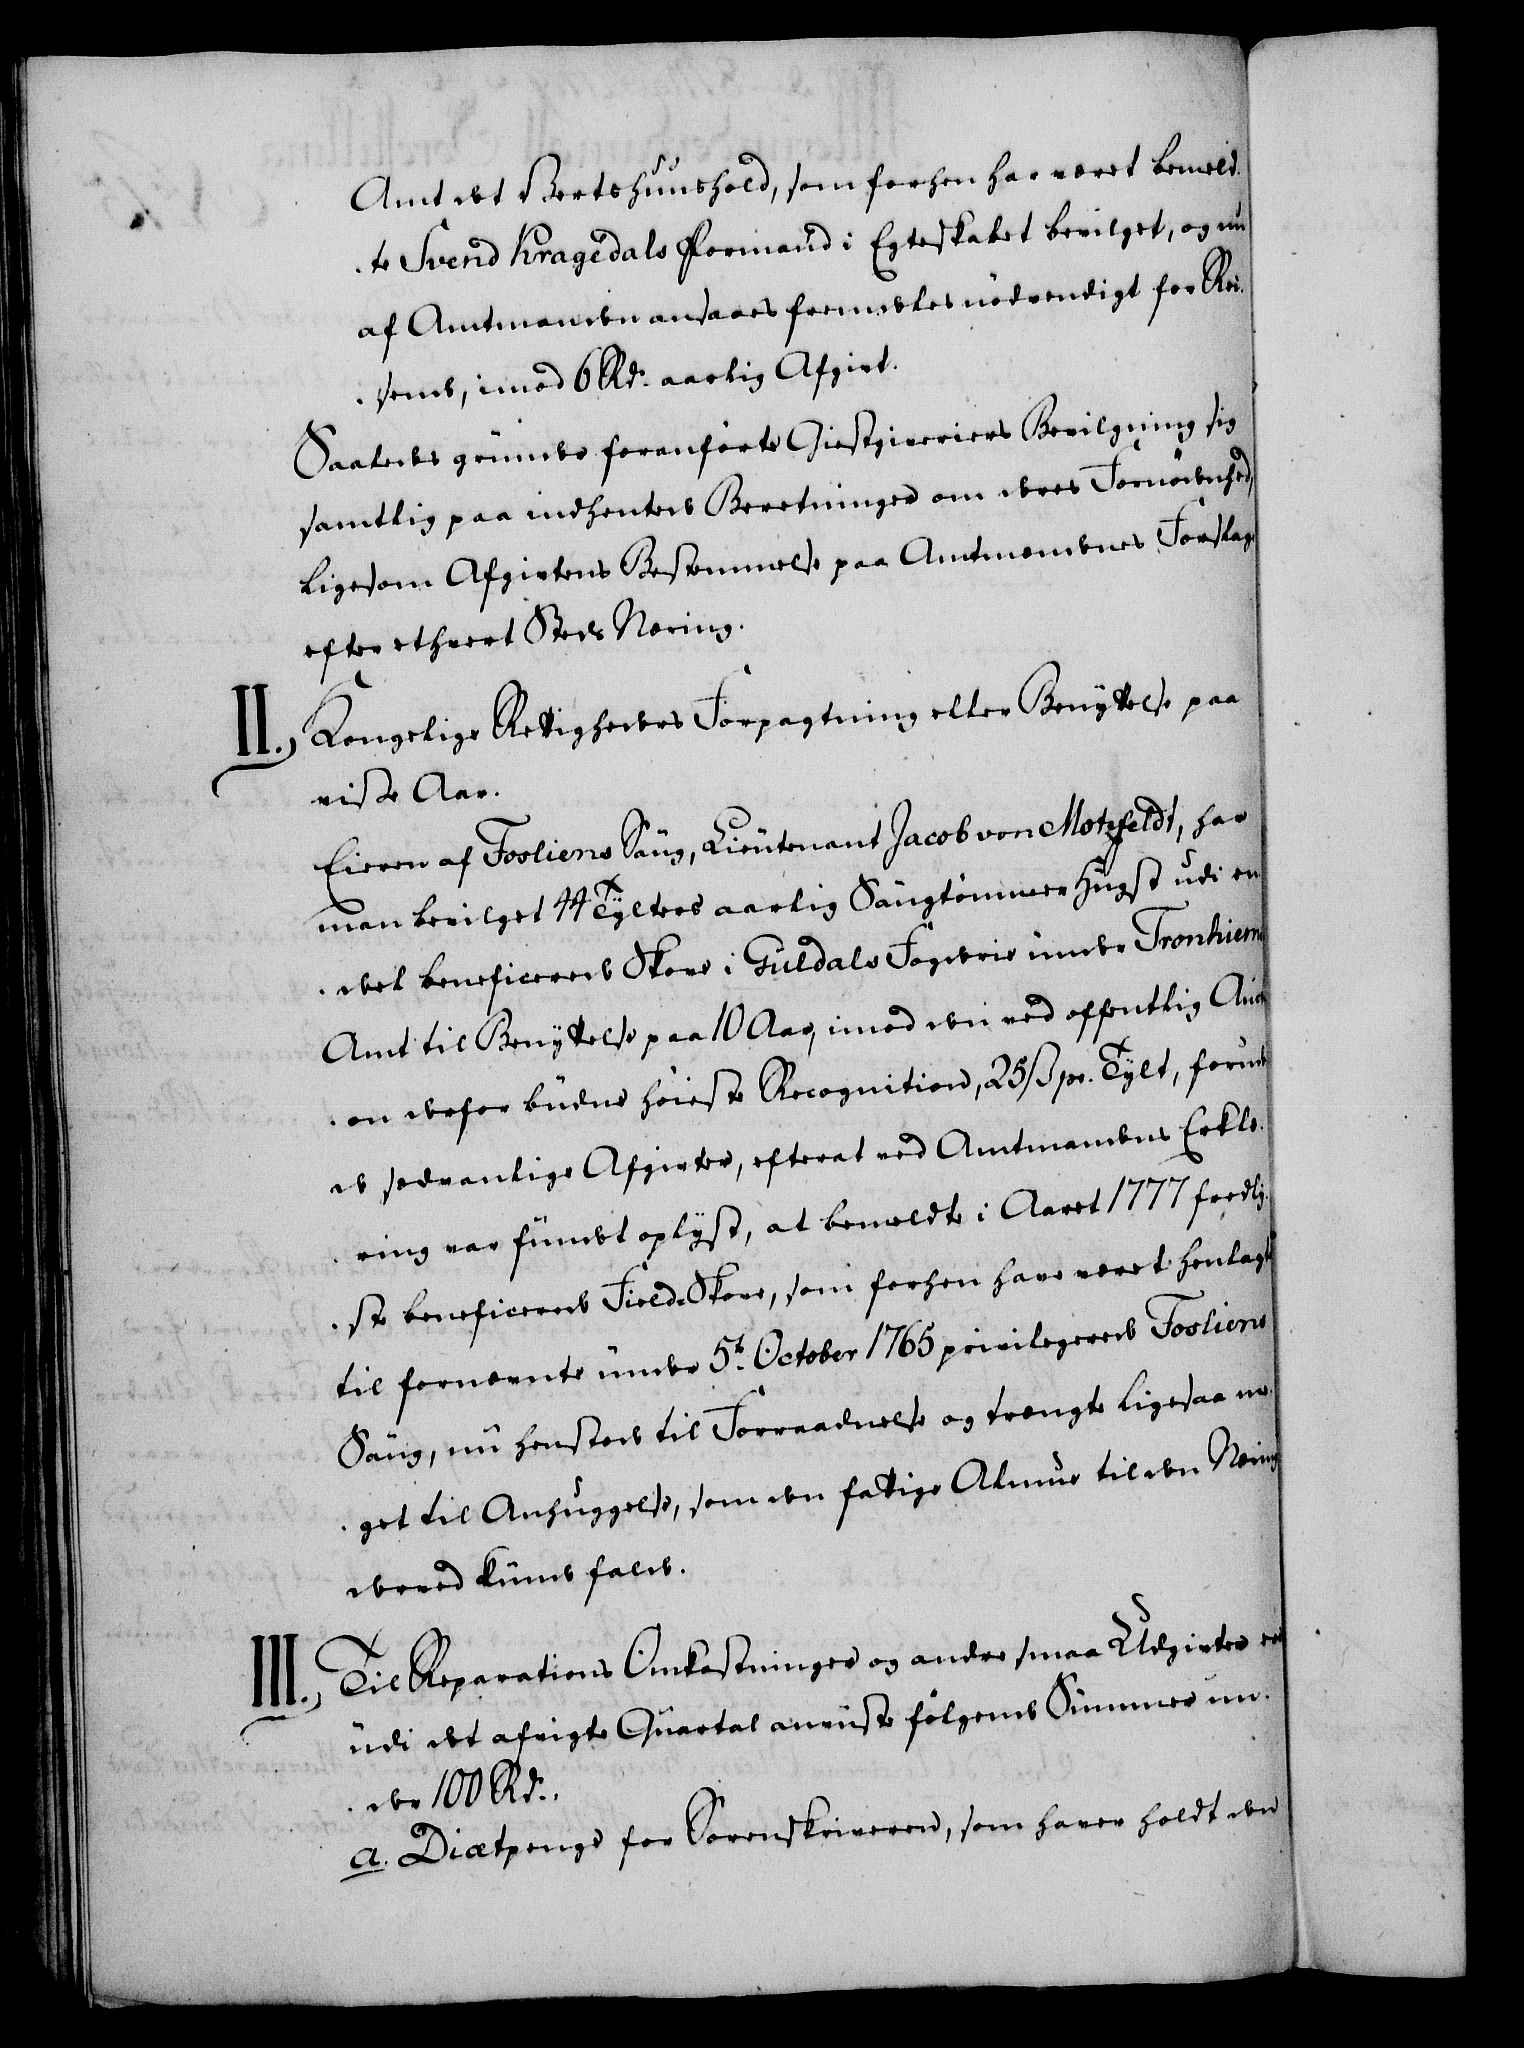 Amt det Vertshuushold, som forhen har været bemeld-
-te Svend Kragedals Formand i Egteskabet bevilget, og nu
af Amtmanden ansaaes fremdeles nødvendigt for Rei-
-sende, imod 6 Rd. aarlig Afgivt.
Saaledes grunde foranførte Giestgiveriers Bevilgning sig
samtlig paa indhentede Beretninger om deres Fornødenhed,
ligesom Afgivtens Bestemmelse paa Amtmændenes Forslage
efter ethvert Steds Næring.
II. Kongelige Rettigheders Forpagtning eller Benyttelse paa
visse Aar.
Eieren af Fosliens Saug, Lieutenant Jacob von Motzfeldt, har
man bevilget 44 Tylters aarlig Saugtømmer Hugst udi en
-del beneficerede Skove i Guldals Fogderie under Tronhiems
Amt til Benyttelse paa 10 Aar, imod den ved offentlig Aucti
-on derfor budne høieste Recognition, 25 s pr. Tylt, foruden
de sædvanlige Afgivter, efterat ved Amtmandens Erklæ-
-ring var fundet oplyst, at bemeldte i Aaret 1777 fredly-
-ste beneficerede Field-Skove, som forhen have været henlagte
til fornævnte under 5t. October 1765 privilegerede Fosliens
Saug, nu henstode til Forraadnelse og trængte ligesaa me-
-get til Anhuggelse, som den fattige Almue til den Næring
derved kunde falde.
III. Til Reparations Omkostninger og andre smaa Udgivter ere
udi det afvigte Quartal anviiste følgende Summer un-
-der 100 Rd.
a. Diætpenge for Sorenskriveren, som haver holdt den